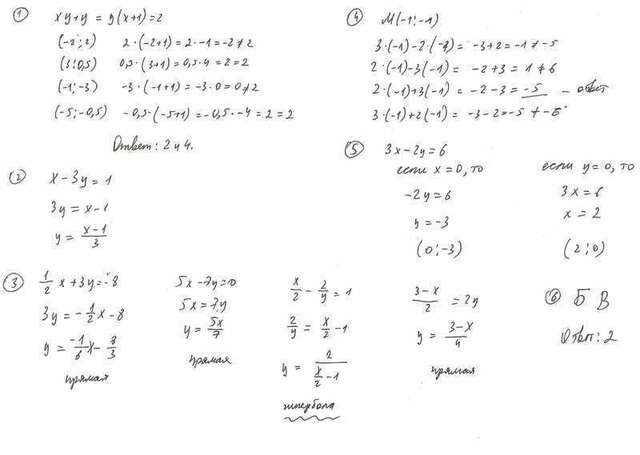 ① xy+y = y(x+1)=2
(-2;2) 2·(-2+1)=2·-1=-2≠2
(3;0,5) 0,5·(3+1)=0,5·4=2=2
(-1;-3) -3·(-1+1)=-3·0=0≠2
(-5;-0,5) -0,5·(-5+1)=-0,5·-4=2=2
Ответ: 2 и 4.
② x-3y=1
3y=x-1
y=(x-1)/3
③ 1/2 x+3y=-8
3y=-1/2 x-8
y=-1/6 x-8/3
прямая
5x-7y=0
5x=7y
y=5x/7
прямая
x/2-2/y=1
2/y=x/2-1
y=2/(x/2-1)
гипербола
(3-x)/2=2y
y=(3-x)/4
прямая
④ M(-1;-1)
3·(-1)-2·(-1)=-3+2=-1≠-5
2·(-1)-3(-1)=-2+3=1≠6
2·(-1)+3(-1)=-2-3=-5 — ответ
3·(-1)+2(-1)=-3-2=-5≠-6
⑤ 3x-2y=6
если x=0, то
-2y=6
y=-3
(0;-3)
если y=0, то
3x=6
x=2
(2;0)
⑥ Б В
Ответ: 2